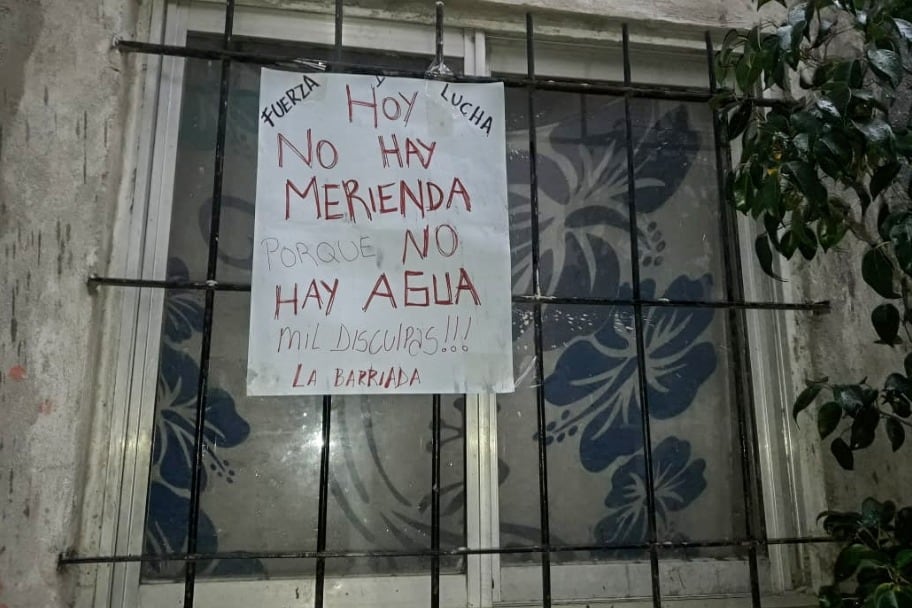 FUERZA Y LUCHA
HOY
NO HAY
MERIENDA
PORQUE NO
HAY AGUA
MIL DISCULPAS!!!
LA BARRIADA